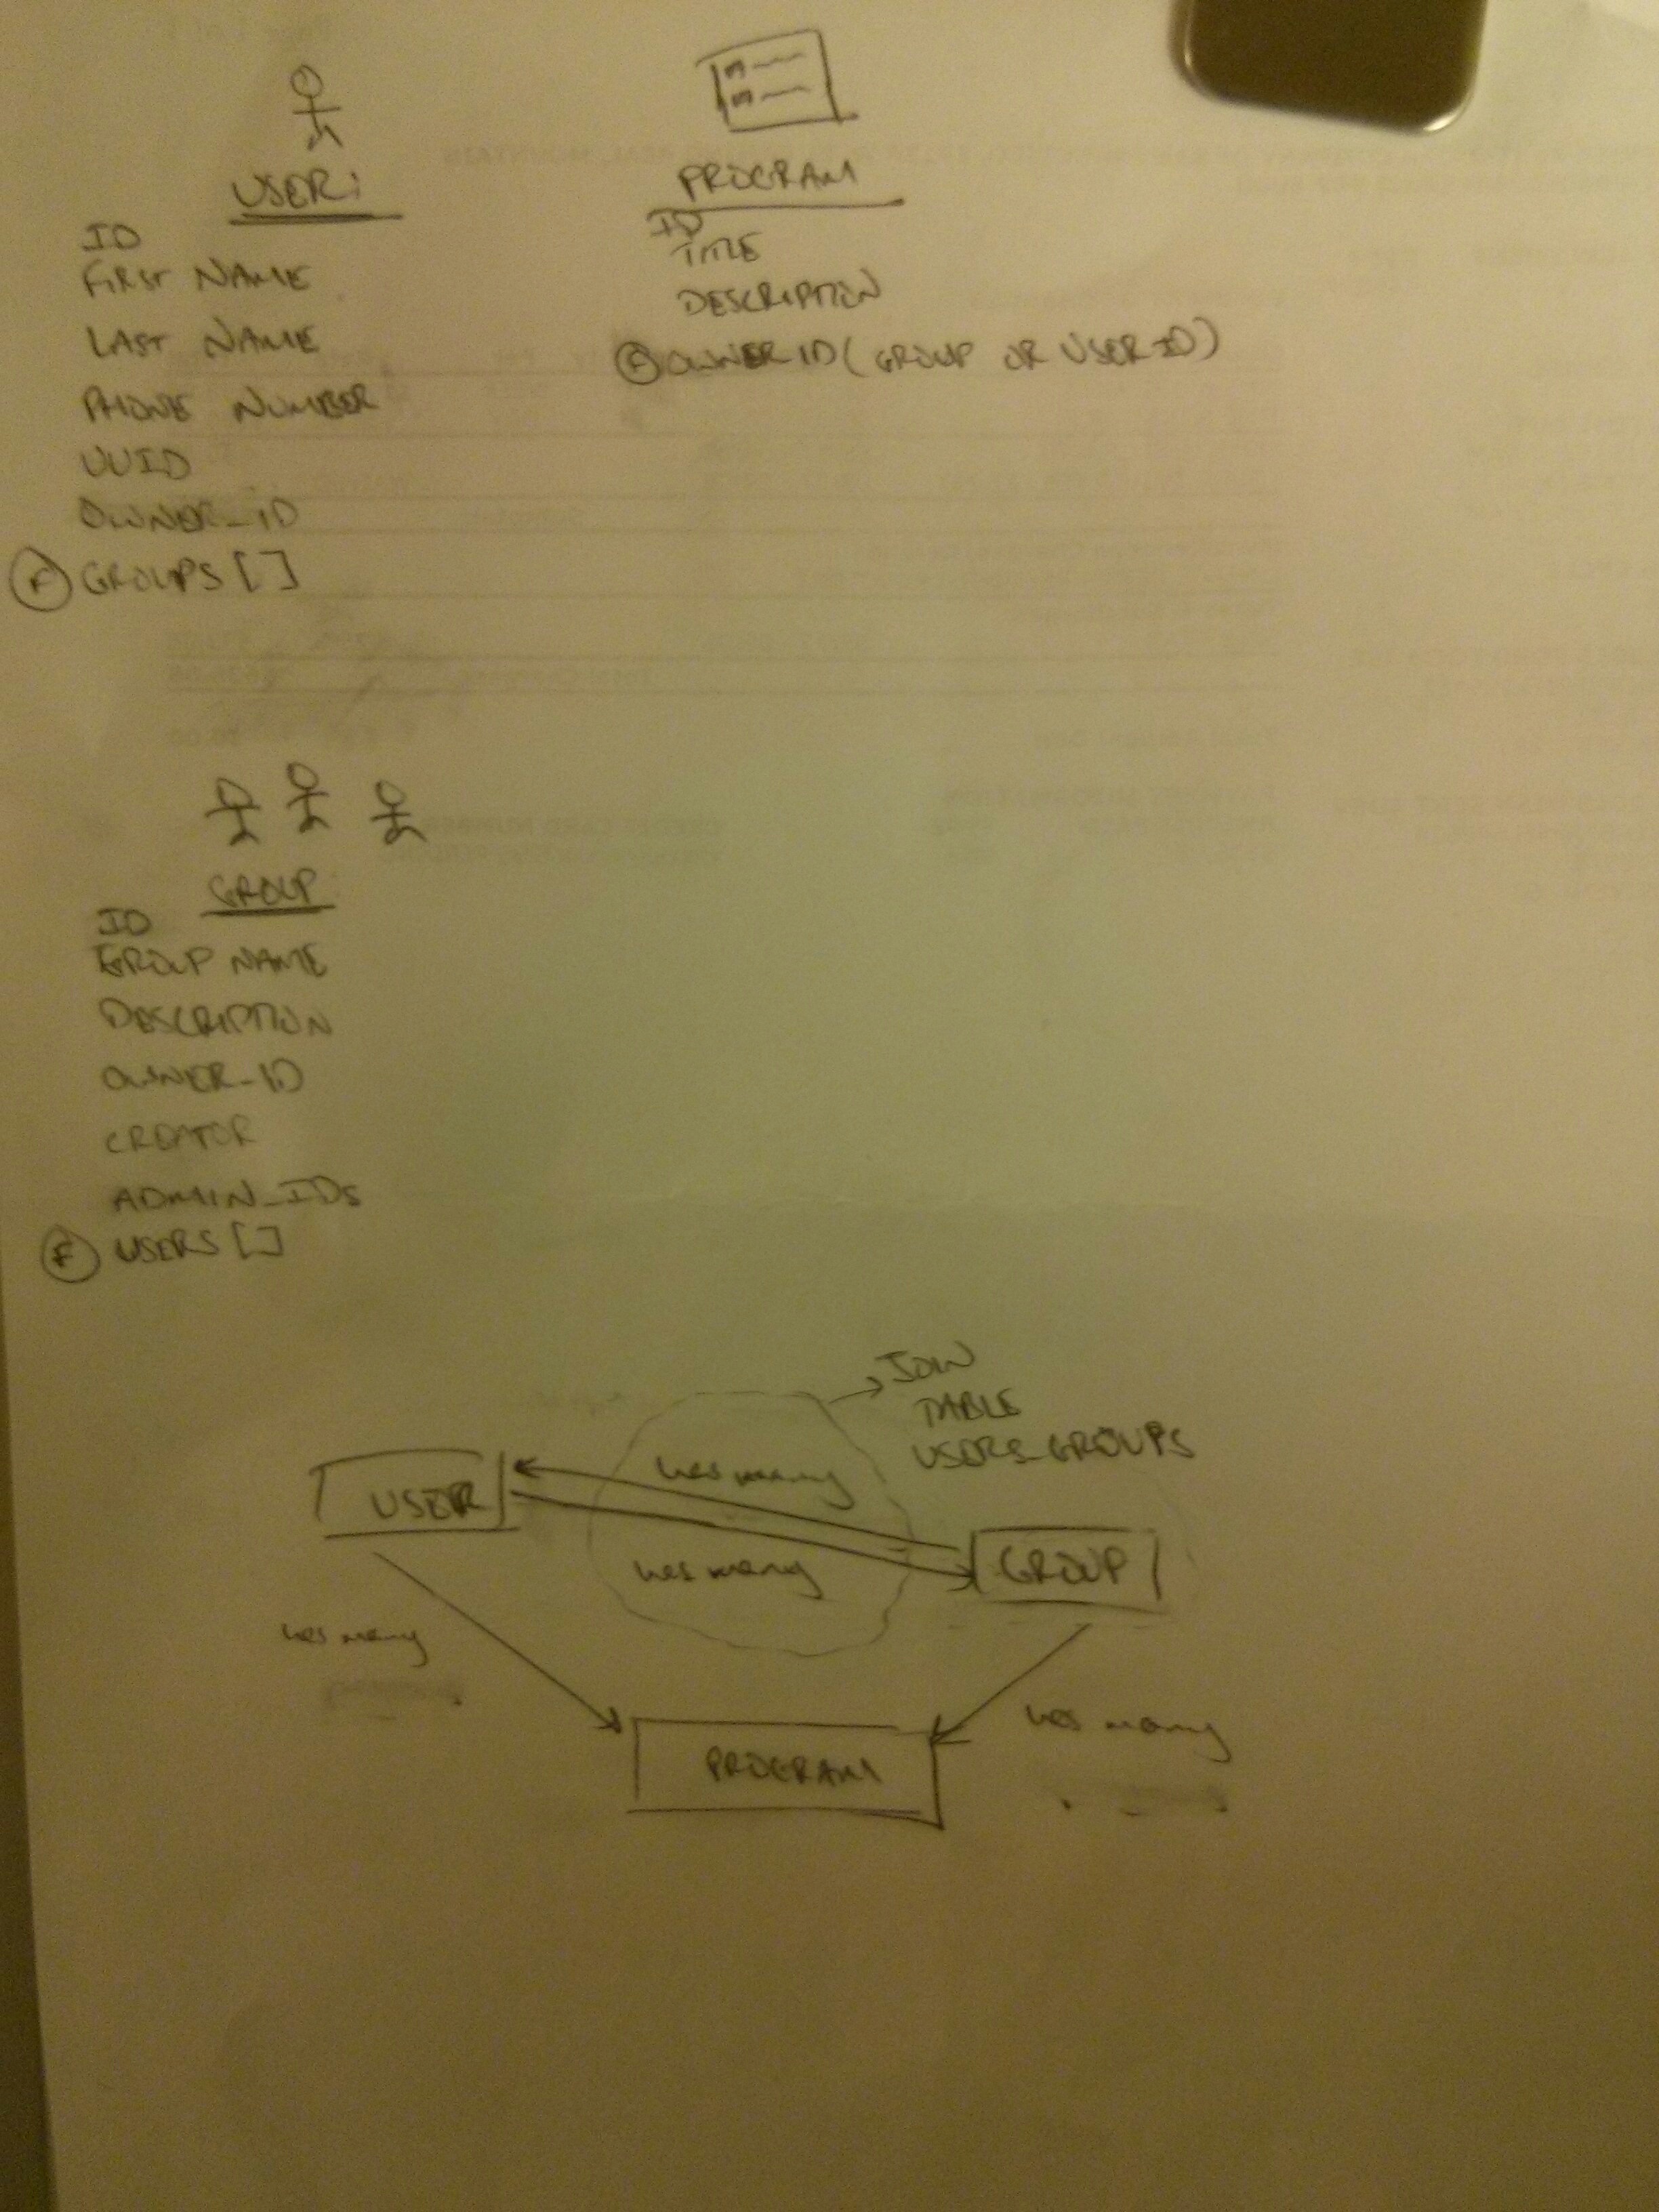 USER:
ID
FIRST NAME
LAST NAME
PHONE NUMBER
UUID
OWNER_ID
F GROUPS []
PROGRAM
ID
TITLE
DESCRIPTION
F OWNER ID (GROUP OR USER ID)
GROUP
ID
GROUP NAME
DESCRIPTION
OWNER_ID
CREATOR
ADMIN_IDS
F USERS []
JOIN
TABLE
USERS_GROUPS
has many
USER
has many
GROUP
has many
has many
PROGRAM